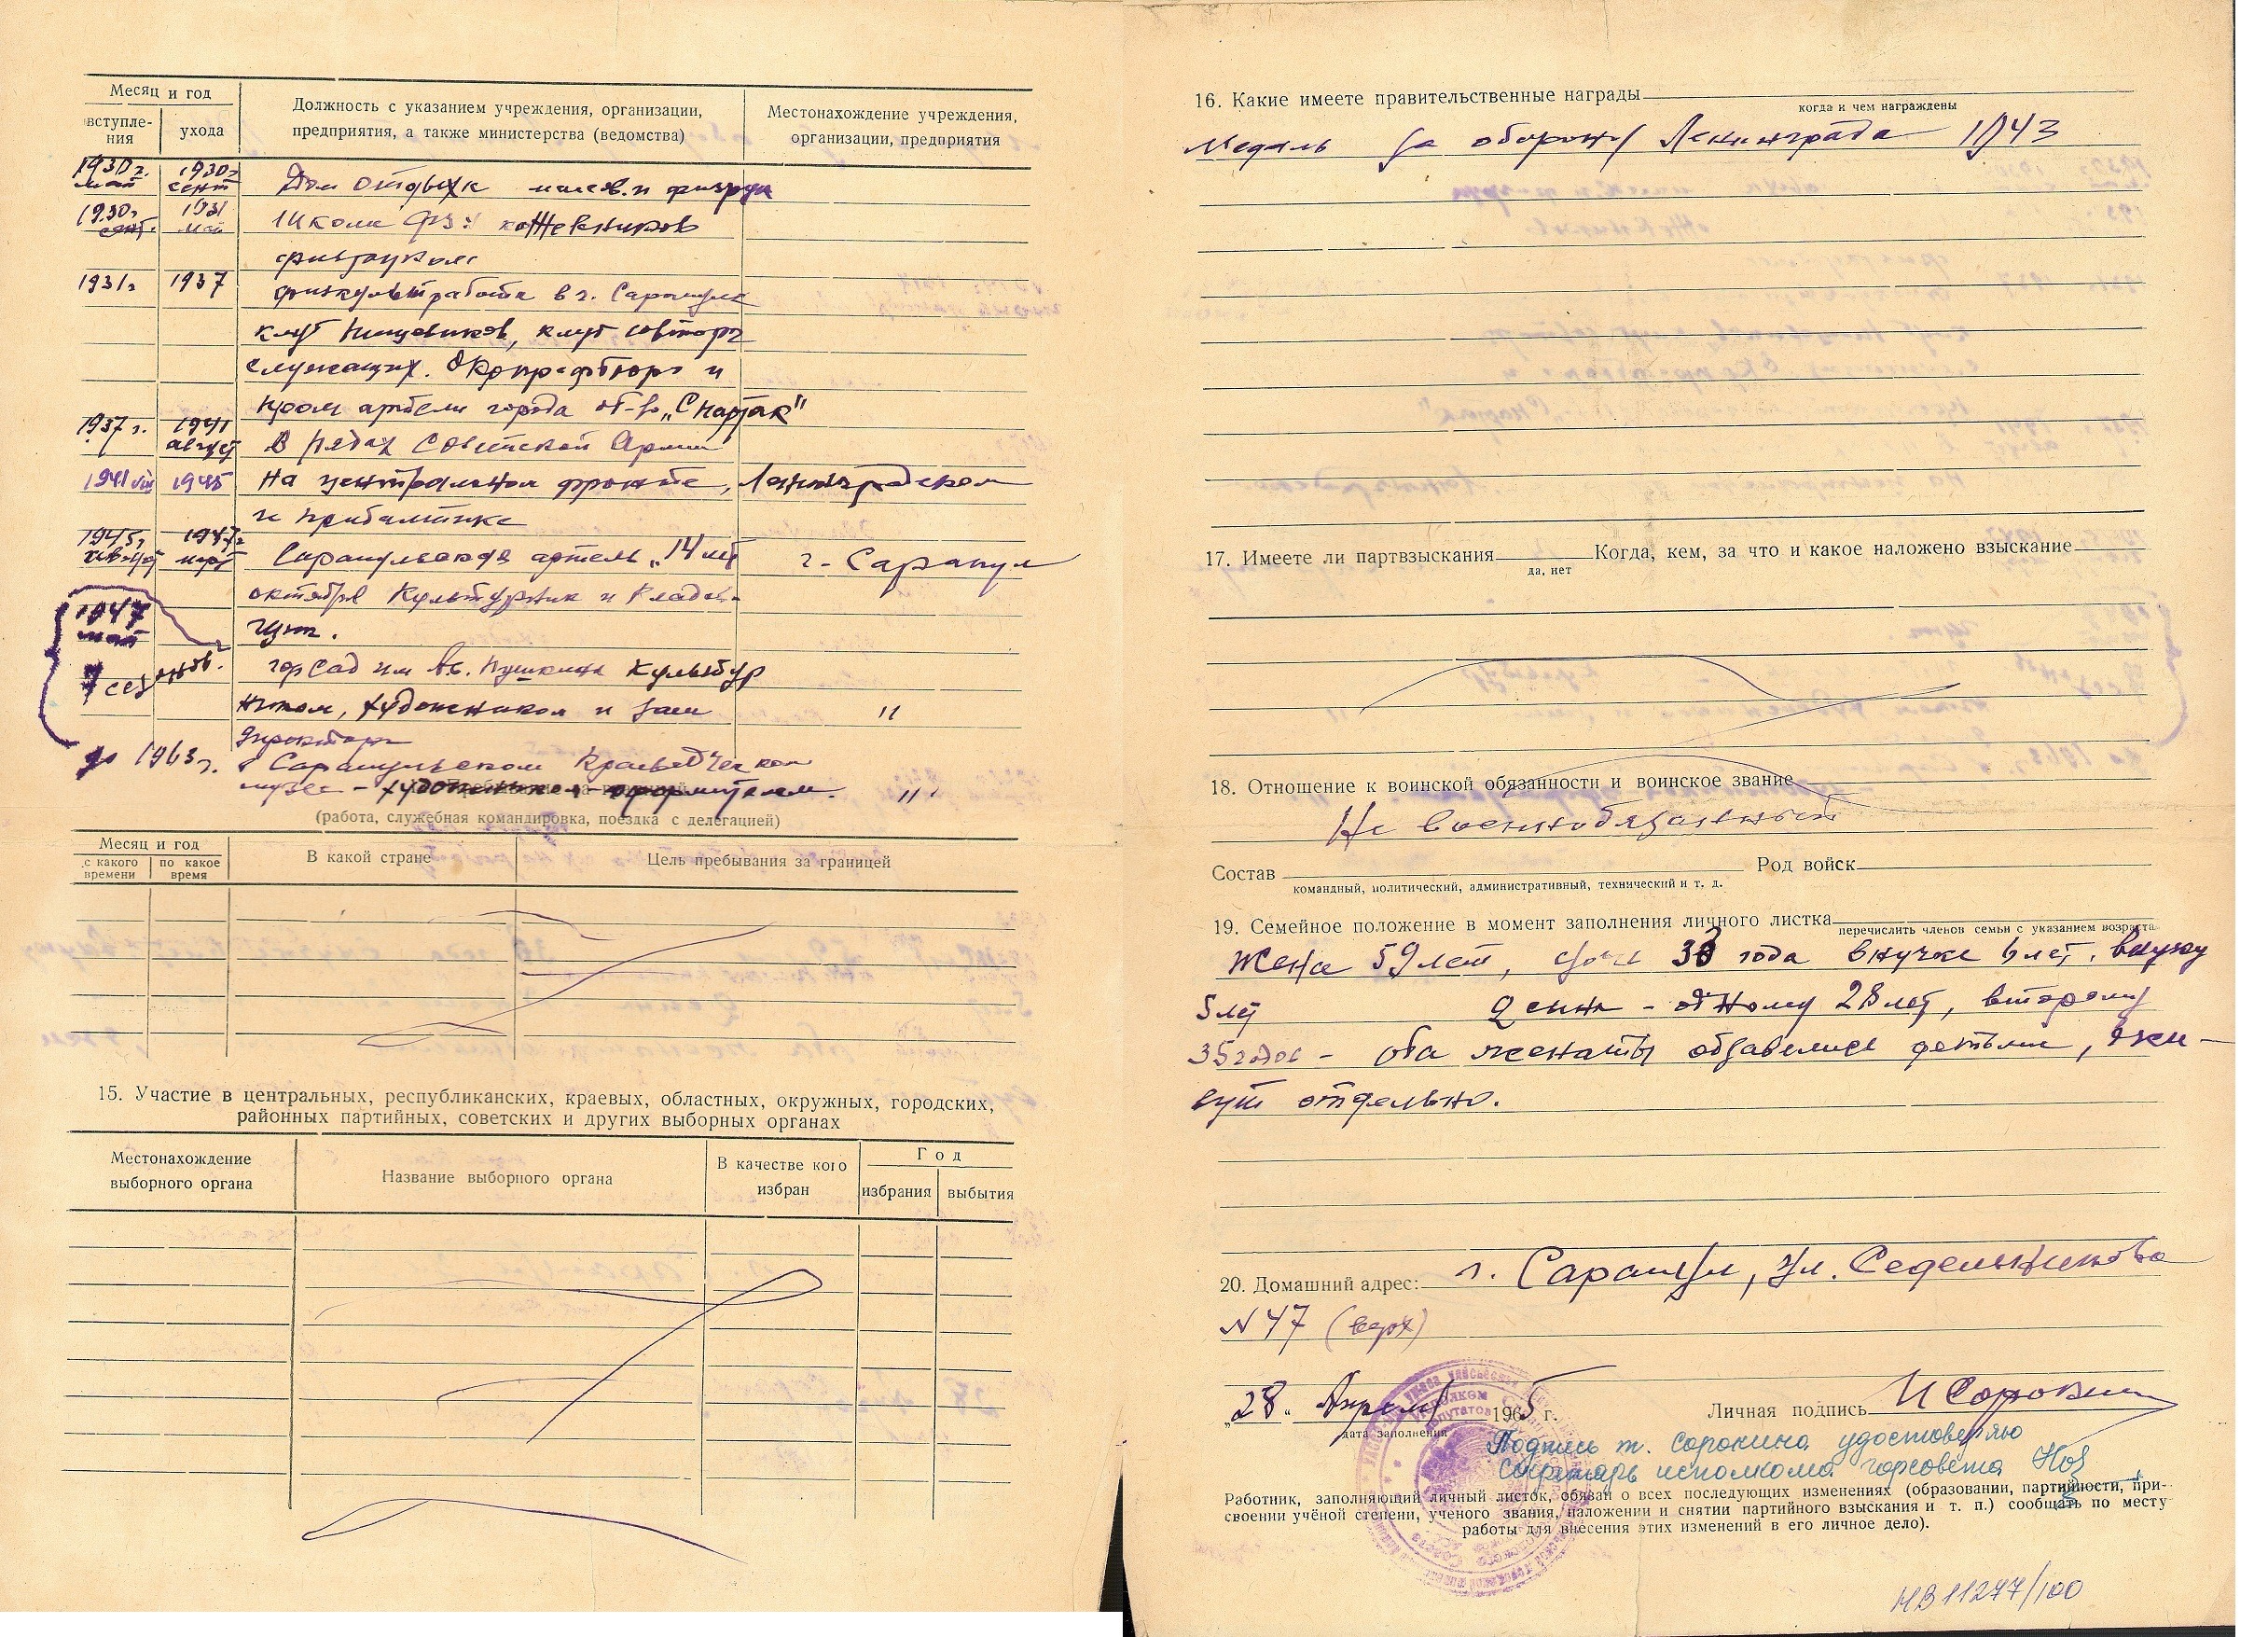 Месяц и год
вступления
ухода
Должность с указанием учреждения, организации, предприятия, а также министерства (ведомства)
Местонахождение учреждения, организации, предприятия
1930 г. май 1930 г сент Дом отдыха массов. и физрук
1930 г сент. 1931 май Школа ФЗУ кожевников
физрук
1931 г 1937 физкультработа в г. Сарапуле
клуб пищевиков, клуб совторг
служащих. Окрпрофбюро и
пром артели города об-во „Спартак"
1937 г. 1941 август В рядах Советской Армии
1941 VIII 1945 На центральном фронте, Ленинградском
и прибалтике
1945 г 1947 г март Сарапульская артель „14 лет г. Сарапул
октября культурник и кладов-
щик.
1947 май горсад им А.С. Пушкина культур
7 сезонов.
ником, художником и зам "
директора
до 1963 г. в Сарапульском Краеведческом
музее - художником-оформителем. "
(работа, служебная командировка, поездка с делегацией)
Месяц и год
с какого времени
по какое время
В какой стране
Цель пребывания за границей
15. Участие в центральных, республиканских, краевых, областных, окружных, городских,
районных партийных, советских и других выборных органах
Местонахождение выборного органа
Название выборного органа
В качестве кого избран
Год
избрания
выбытия
16. Какие имеете правительственные награды
когда и чем награждены
Медаль за оборону Ленинграда 1943
17. Имеете ли партвзыскания Когда, кем, за что и какое наложено взыскание
да, нет
18. Отношение к воинской обязанности и воинское звание
Не военнообязанный
Состав Род войск
командный, политический, административный, технический и т. д.
19. Семейное положение в момент заполнения личного листка
перечислить членов семьи с указанием возраста
Жена 59 лет, дочь 33 года внучке 6 лет, внуку
5 лет 2 сына - одному 28 лет, второму
35 годов - оба женаты обзавелись детьми, жи-
вут отдельно.
20. Домашний адрес: г. Сарапул, ул. Седельникова
N 47 (верх)
„28„ Апреля 1965 г. Личная подпись И Сорокин
дата заполнения
Подпись т. Сорокина удостоверяю
Секретарь исполкома горсовета
Работник, заполняющий личный листок, обязан о всех последующих изменениях (образовании, партийности, при-
своении учёной степени, ученого звания, наложении и снятии партийного взыскания и т. п.) сообщать по месту
работы для внесения этих изменений в его личное дело).
НВ 11277/100